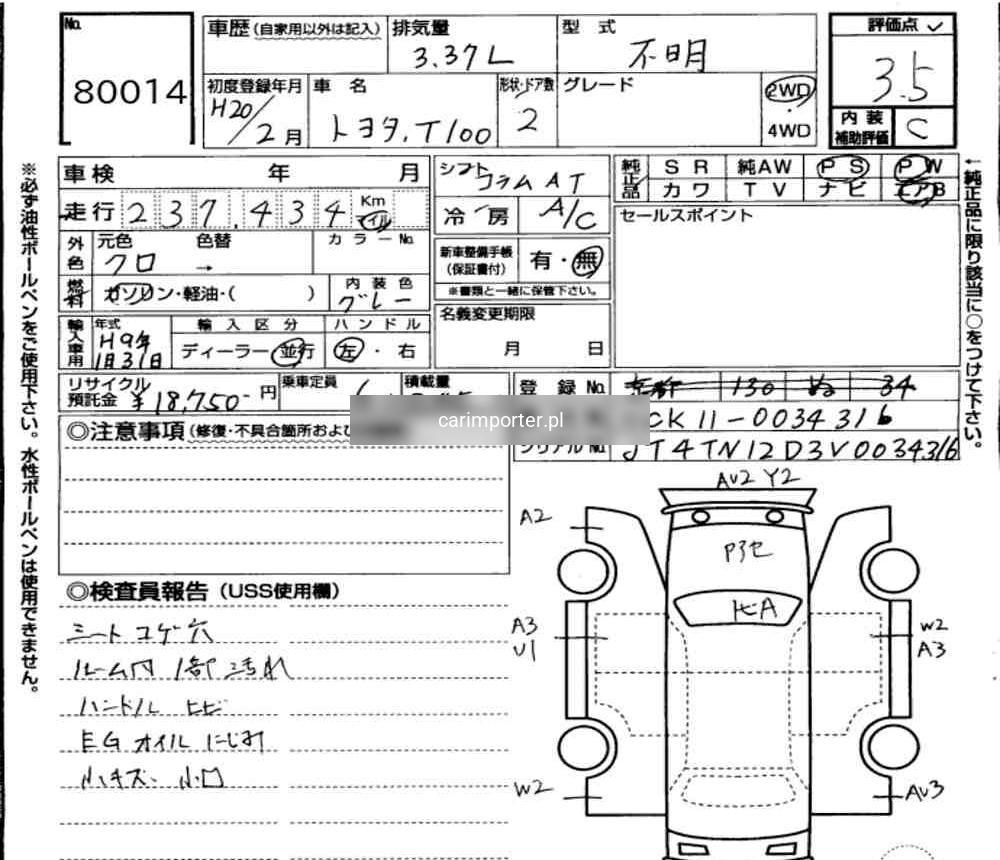 No.
80014
車歴 (自家用以外は記入)
排気量
3.37L
型式
不明
評価点
3.5
初度登録年月
H20/2月
車名
トヨタ.T100
形状・ドア数
2
グレード
2WD
4WD
内装
補助評価
C
車検 年 月
シフト
コラムAT
純正品
SR 純AW PS PW
カワ TV ナビ エアB
走行 237,434 Km マイル
冷房
A/C
セールスポイント
外色
元色 色替 カラーNo.
クロ →
新車整備手帳
(保証書付)
有・無
※書類と一緒に保管下さい。
燃料
ガソリン・軽油・( )
内装色
グレー
輸入車用
年式
H9年
1月31日
輸入区分
ディーラー 並行
ハンドル
左・右
名義変更期限
月 日
リサイクル
預託金
¥18,750-円
乗車定員
積載量
登録No. 130 34
carimporter.pl
CK11-0034316
シリアルNo. JT4TN12D3V0034316
◎注意事項 (修復・不具合箇所およ
◎検査員報告 (USS使用欄)
シートコゲ穴
ルーム内1部汚れ
ハンドル ヒビ
EGオイルにじみ
小キズ 小凹
AU2 Y2
A2
A3
U1
W2
W2
A3
AU3
※必ず油性ボールペンをご使用下さい。水性ボールペンは使用できません。
←純正品に限り該当に○をつけて下さい。